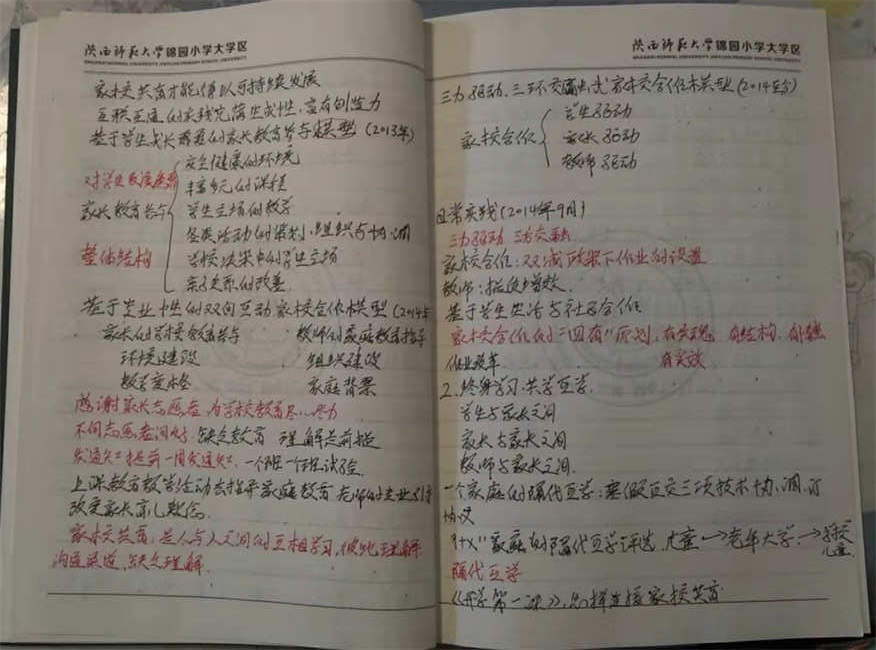 陕西师范大学锦园小学大学区
家校共育才能得以可持续发展
互联互通的实践
富有创造力
基于学生成长需要的家长教育参与模型（2013年）
安全健康的环境
对学生发展
丰富多元的课程
家长教育参与
学生立场的教学
各类活动的策划，组织与协调
整体结构
学校决策中的学生立场
亲子关系的改善
基于专业性的双向互动家校合作模型（2014年
家长的学校教育参与
教师的家庭教育指导
环境建设
组织建设
教育变革
家庭背景
感谢家长志愿者，为学校教育尽心尽力
不同志愿者 缺乏教育 理解是前提
发通知提前一周发通知，一个班一个班试验
上课教育教学活动去推开家庭教育 老师的专业引
改变家长育儿观念
家校共育，是人与人之间的互相学习，彼此理解
沟通渠道，缺乏理解
陕西师范大学锦园小学大学区
三力驱动、三环交融式家校合作模型（2014至今）
学生驱动
家校合作 家长驱动
教师驱动
日常实践（2014年9月）
三力驱动 三方交融
家校合作：双减政策下作业的设置
教师：提质增效
基于学生生活与社会合作
家校合作的"四有"原则，有实现 有结构，有
作业改革 有实效
2.终身学习，共学互学
学生与家长之间
家长与家长之间
教师与家长之间
一个家庭的隔代互学：寒假互交三项技术协调，订
协议
"家庭的隔代互学评选，儿童→老年大学，→
儿童
隔代互学
《开学第一课》，怎样连接家校共育